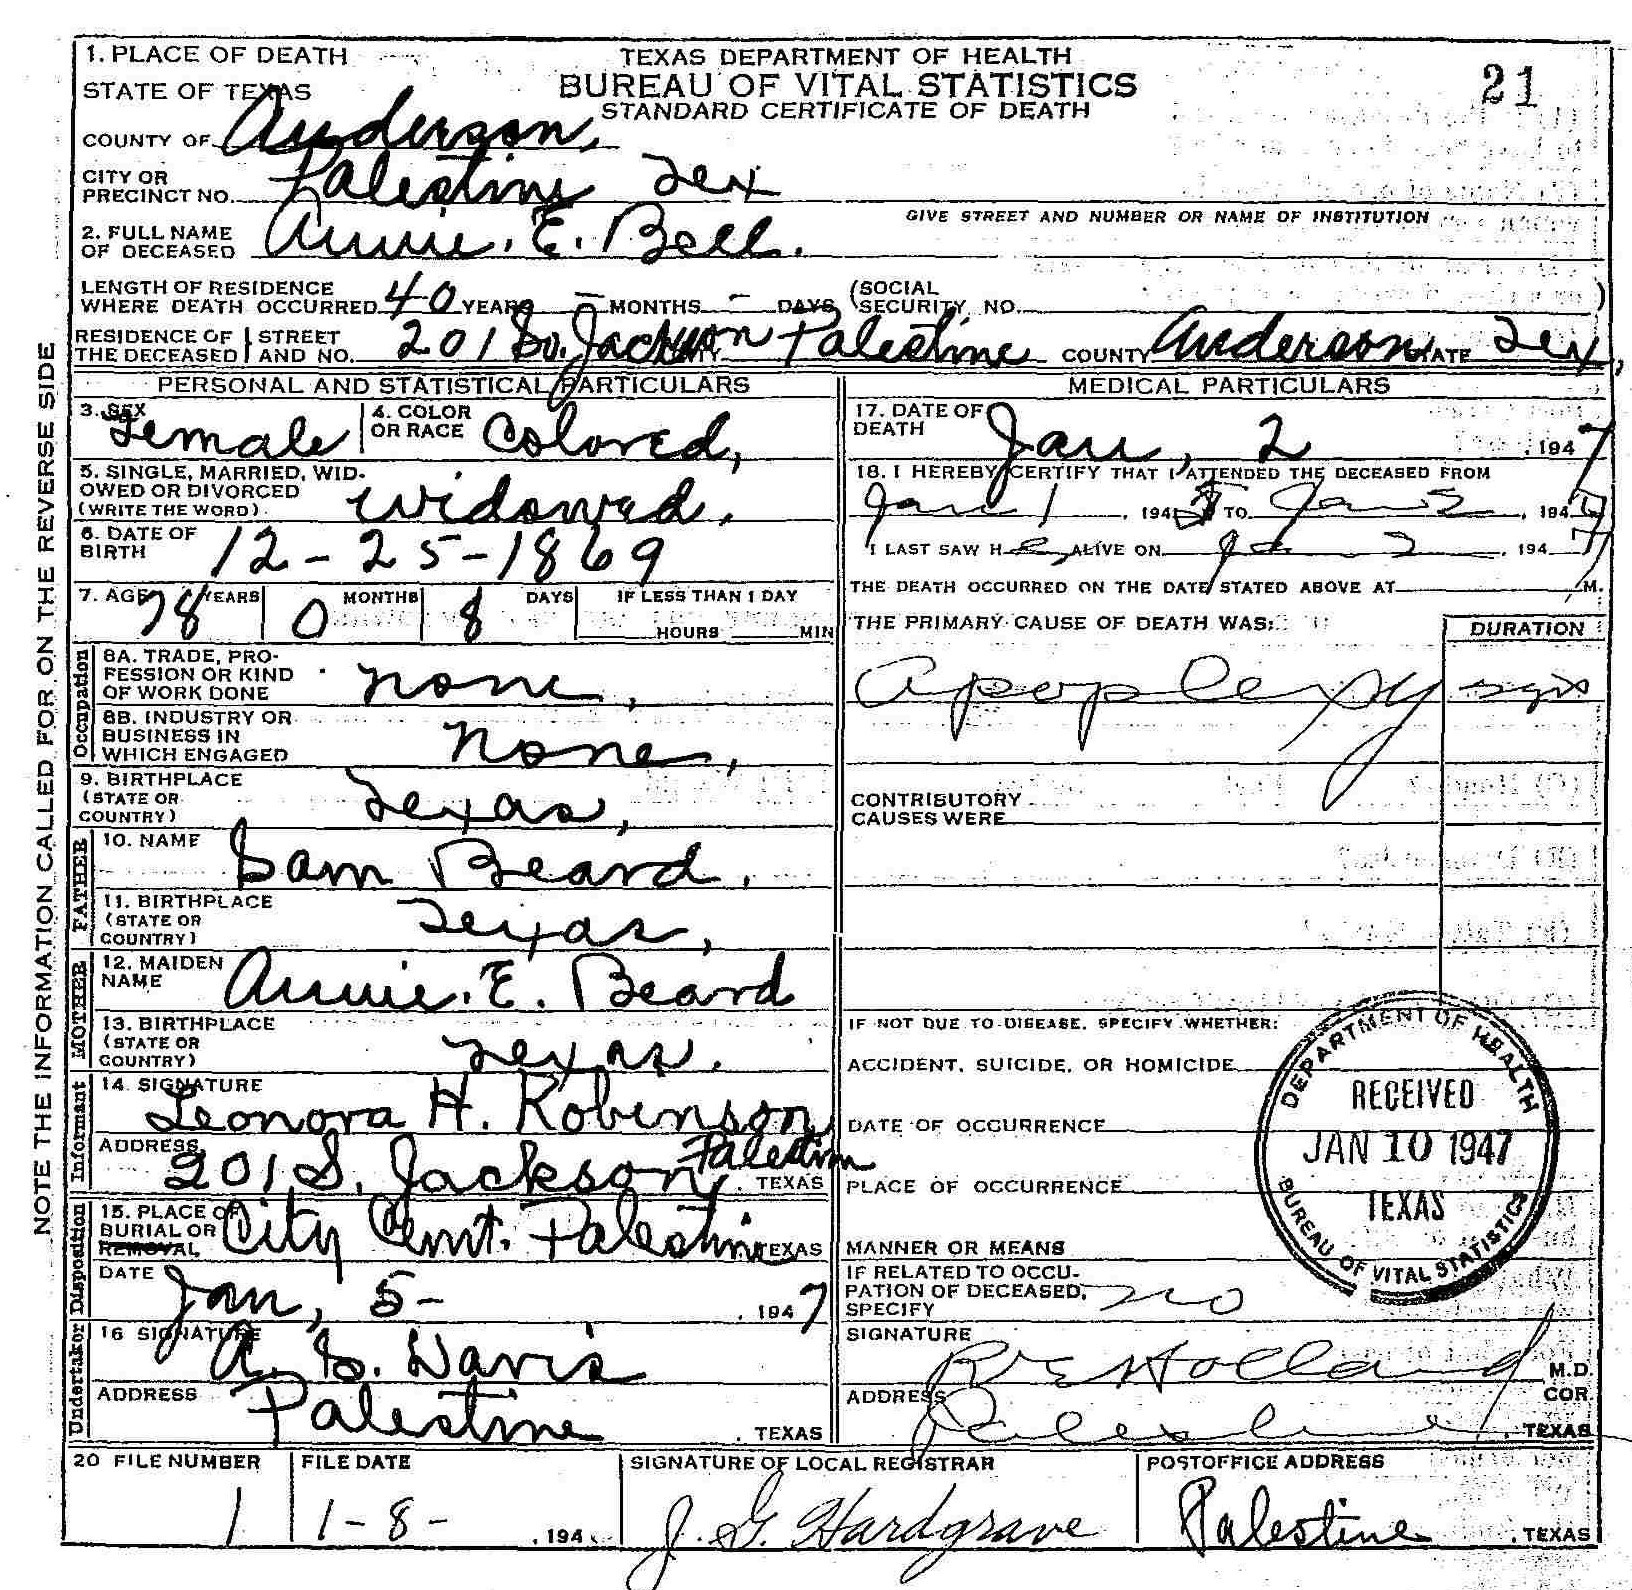 1. PLACE OF DEATH
TEXAS DEPARTMENT OF HEALTH
BUREAU OF VITAL STATISTICS
STANDARD CERTIFICATE OF DEATH
21
STATE OF TEXAS
COUNTY OF Anderson,
CITY OR
PRECINCT NO. Palestine Tex
GIVE STREET AND NUMBER OR NAME OF INSTITUTION
2. FULL NAME
OF DECEASED Annie. E. Bell.
LENGTH OF RESIDENCE
WHERE DEATH OCCURRED 40 YEARS - MONTHS - DAYS (SOCIAL
SECURITY NO. )
RESIDENCE OF THE DECEASED STREET AND NO. 201 So. Jackson Palestine COUNTY Anderson STATE Tex,
NOTE THE INFORMATION CALLED FOR ON THE REVERSE SIDE
PERSONAL AND STATISTICAL PARTICULARS
3. SEX Female
4. COLOR
OR RACE Colored,
5. SINGLE, MARRIED, WID-
OWED OR DIVORCED
(WRITE THE WORD) Widowed,
6. DATE OF
BIRTH 12-25-1869
7. AGE 78 YEARS 0 MONTHS 8 DAYS IF LESS THAN 1 DAY
HOURS MIN
Occupation
8A. TRADE, PRO-
FESSION OR KIND
OF WORK DONE none,
8B. INDUSTRY OR
BUSINESS IN
WHICH ENGAGED None,
9. BIRTHPLACE
(STATE OR
COUNTRY) Texas,
FATHER
10. NAME Sam Beard.
11. BIRTHPLACE
(STATE OR
COUNTRY) Texas,
MOTHER
12. MAIDEN
NAME Annie. E. Beard
13. BIRTHPLACE
(STATE OR
COUNTRY) Texas.
Informant
14. SIGNATURE
Leonora H. Robinson
ADDRESS 201 S. Jackson Palestine TEXAS
Disposition
15. PLACE OF
BURIAL OR
REMOVAL City Cemt. Palestine TEXAS
DATE Jan, 5- , 1947
Undertaker
16 SIGNATURE
A. S. Davis
ADDRESS Palestine , TEXAS
MEDICAL PARTICULARS
17. DATE OF
DEATH Jan, 2 , 1947
18. I HEREBY CERTIFY THAT I ATTENDED THE DECEASED FROM
Jan 1 , 194 TO Jan 2 , 1947
I LAST SAW HER ALIVE ON Jan 2 , 1947
THE DEATH OCCURRED ON THE DATE STATED ABOVE AT M.
THE PRIMARY CAUSE OF DEATH WAS:
DURATION
Apoplexy
CONTRIBUTORY
CAUSES WERE
IF NOT DUE TO DISEASE, SPECIFY WHETHER:
ACCIDENT, SUICIDE, OR HOMICIDE
DATE OF OCCURRENCE
PLACE OF OCCURRENCE
MANNER OR MEANS
DEPARTMENT OF HEALTH
RECEIVED
JAN 10 1947
TEXAS
BUREAU OF VITAL STATISTICS
IF RELATED TO OCCU-
PATION OF DECEASED,
SPECIFY no
SIGNATURE
Holland M.D.
COR.
ADDRESS Palestine , TEXAS
20 FILE NUMBER 1
FILE DATE 1-8- , 194
SIGNATURE OF LOCAL REGISTRAR
J. G. Hardgrave
POSTOFFICE ADDRESS
Palestine , TEXAS